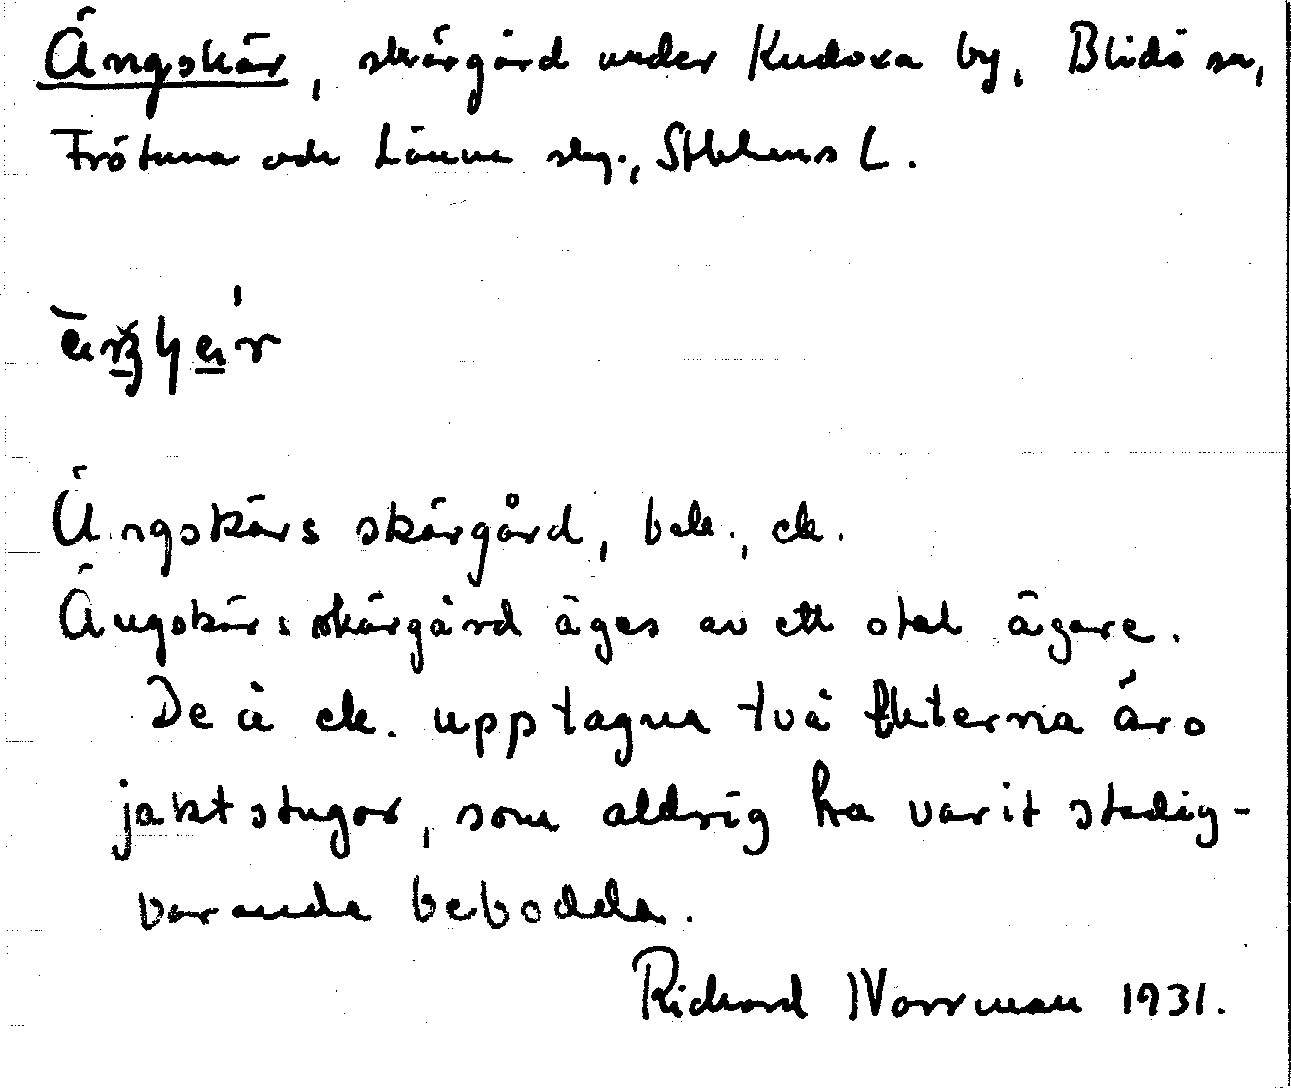 Ängskär, skärgård under Kudoxa by, Blidö sn,
Frötuna och Länna skg., Sthlms L.
Ängskärs skärgård, bek., ek.
Ängskärs skärgård äges av ett otal ägare.
De å ek. upptagna två fkterna äro
jaktstugor, som aldrig ha varit stadig-
varande bebodda.
Richard Norrman 1931.